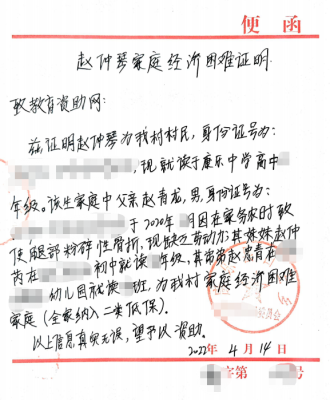 便函
赵仲琴家庭经济困难证明
致教育资助网:
兹证明赵仲琴为我村村民,身份证号为:
,现就读于康乐中学高中
年级。该生家庭中父亲赵青龙,男,身份证号为:
于2020年 月因在家务农时致
使腿部粉碎性骨折,现缺乏劳动力;其妹妹赵仲
芮在 初中就读 年级,其弟弟赵忠有在
幼儿园就读 班,为我村家庭经济困难
家庭(全家纳入二类低保)。
以上信息真实无误,望予以资助。
2022年4月14日
字第 号